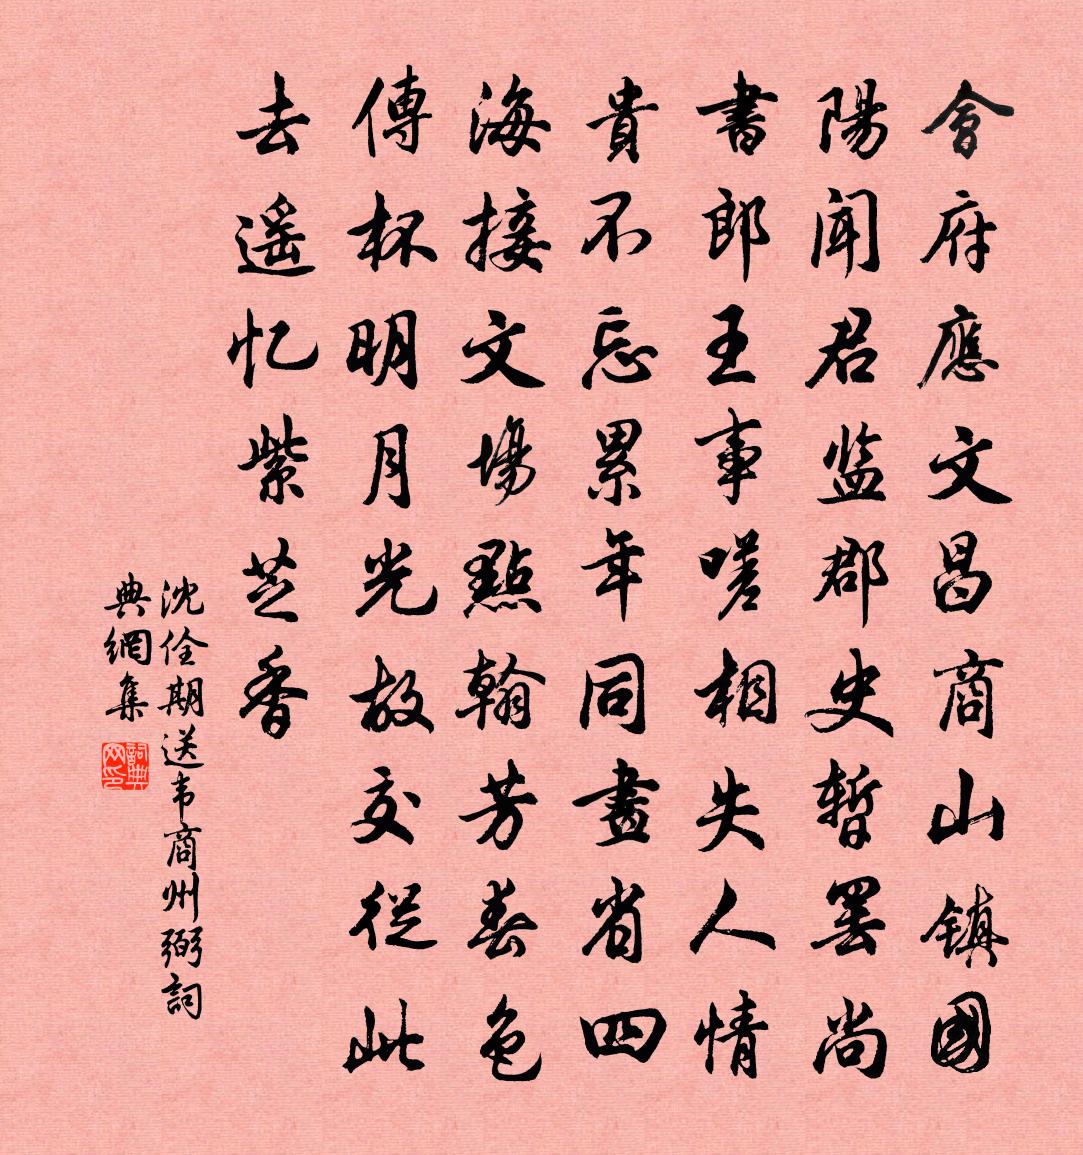 會府應文昌商山鎮國
陽聞君监郡史暫罢尚
書郎王事嗟相失人情
貴不忘累年同畫省四
海接文場點翰芳春色
傳杯明月光故交從此
去遥忆紫芝香
沈佺期送韦商州弼詞
典網集
詞典
网印